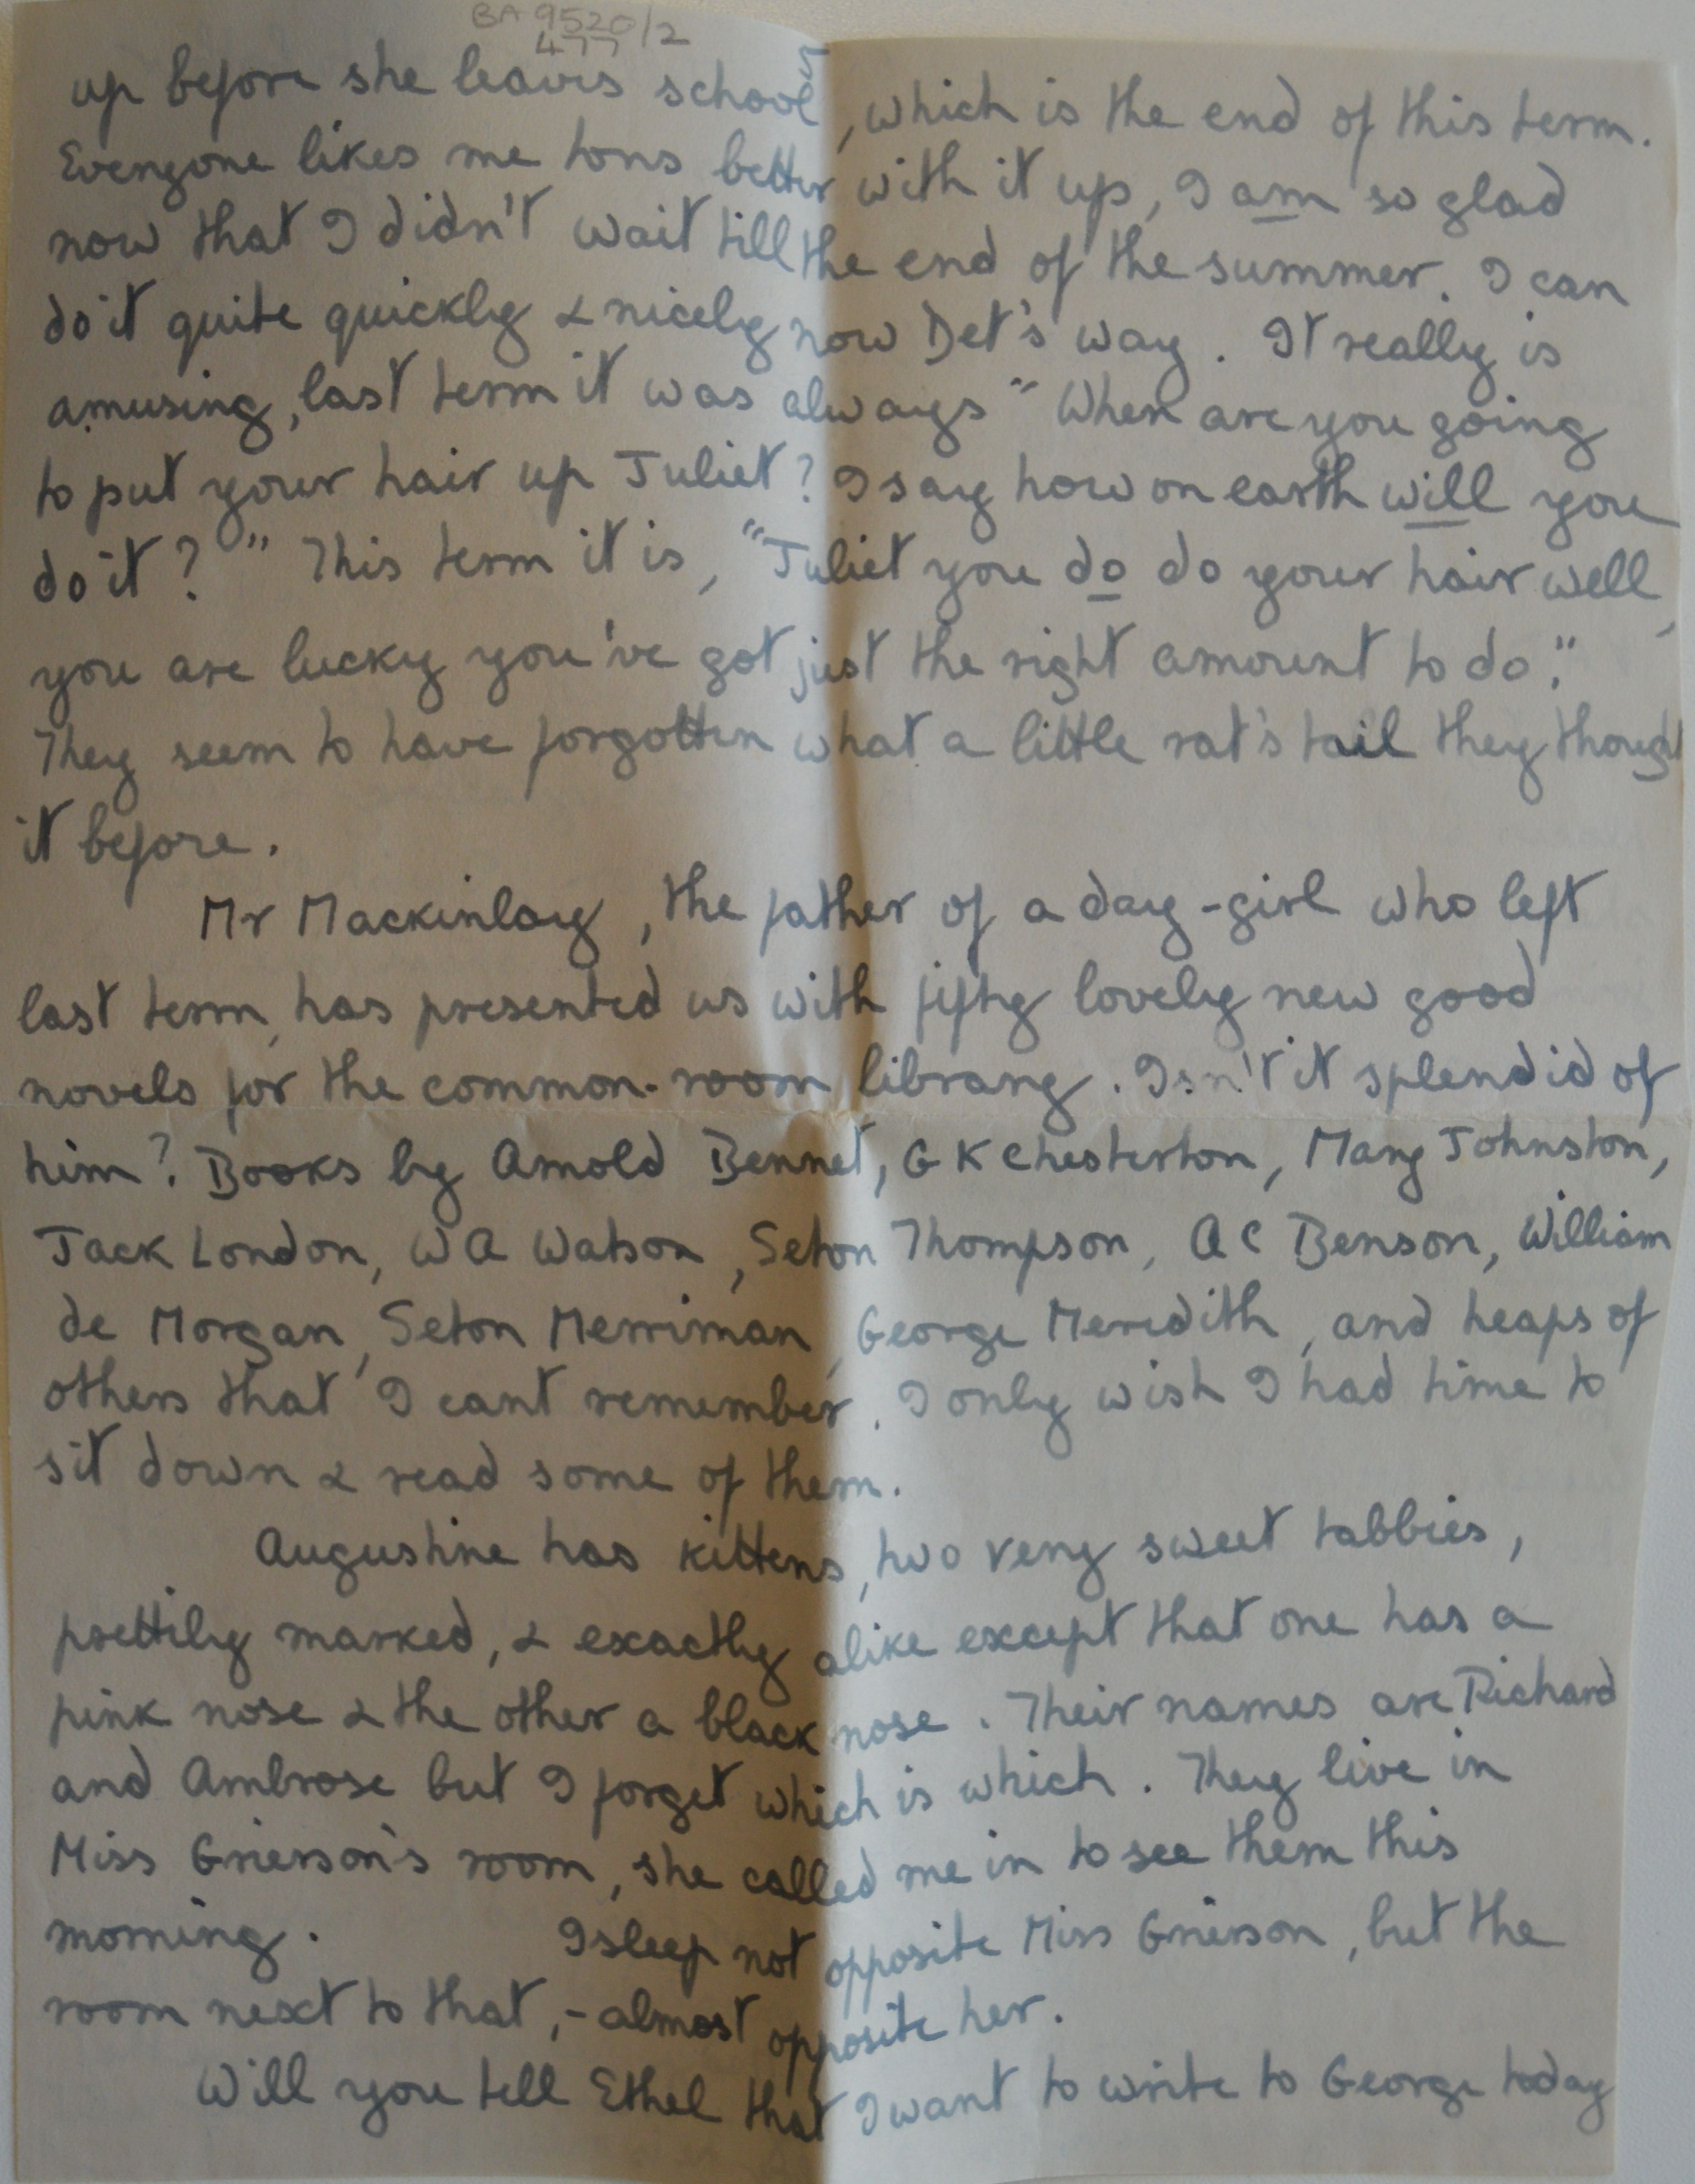 BA 9520/2
477
5
up before she leaves school, which is the end of this term.
Everyone likes me tons better with it up, I am so glad
now that I didn't wait till the end of the summer. I can
do it quite quickly & nicely now Det's way. It really is
amusing, last term it was always "When are you going
to put your hair up Juliet? I say how on earth will you
do it?" This term it is, "Juliet you do do your hair well,
you are lucky you've got just the right amount to do."
They seem to have forgotten what a little rat's tail they thought
it before.
Mr Mackinlay, the father of a day-girl who left
last term, has presented us with fifty lovely new good
novels for the common-room library. Isn't it splendid of
him? Books by Arnold Bennet, G K Chesterton, Mary Johnston,
Jack London, W A Watson, Seton Thompson, A C Benson, William
de Morgan, Seton Merriman, George Meredith, and heaps of
others that I cant remember. I only wish I had time to
sit down & read some of them.
Augustine has kittens, two very sweet tabbies,
prettily marked, & exactly alike except that one has a
pink nose & the other a black nose. Their names are Richard
and Ambrose but I forget which is which. They live in
Miss Grierson's room, she called me in to see them this
morning. I sleep not opposite Miss Grierson, but the
room next to that, - almost opposite her.
Will you tell Ethel that I want to write to George today